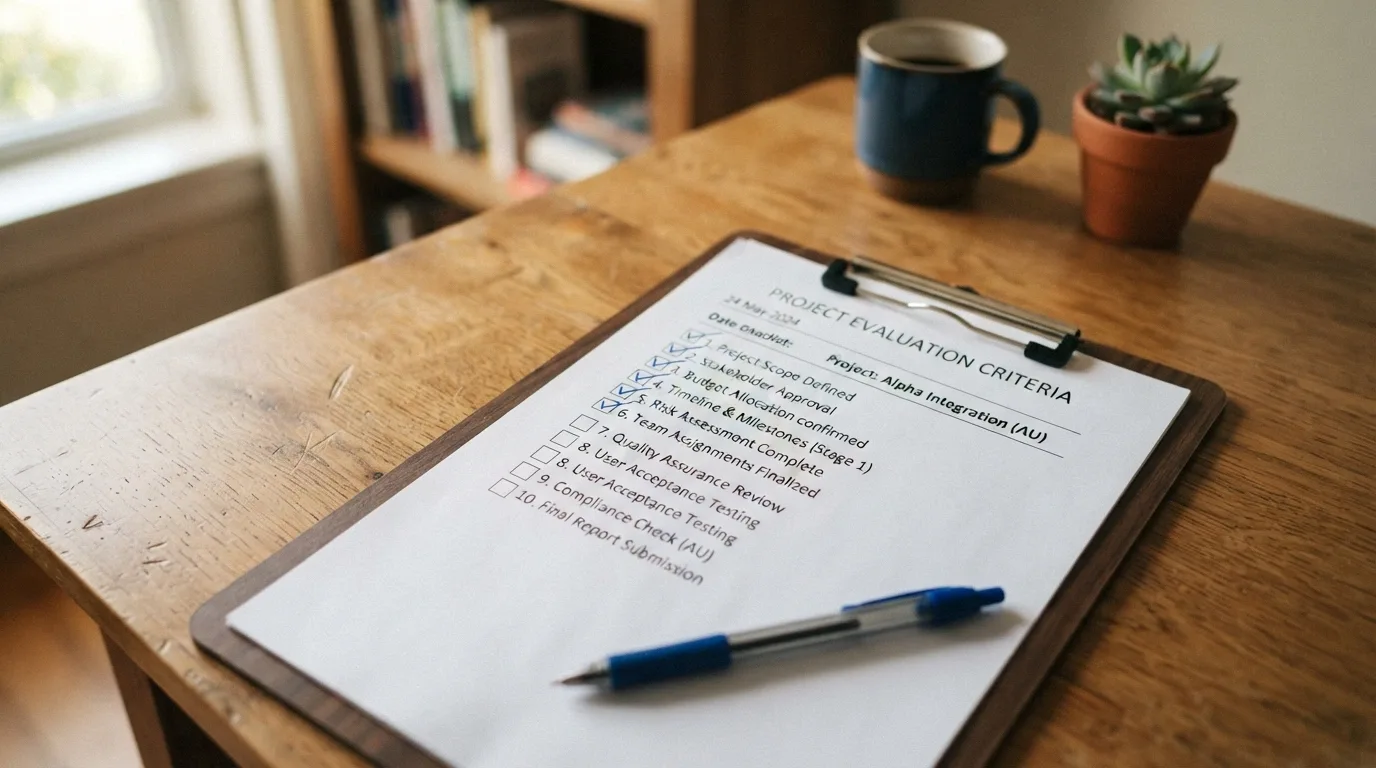 PROJECT EVALUATION CRITERIA
24 May 2024
Date Project: Alpha Integration (AU)
1. Project Scope Defined
2. Stakeholder Approval
3. Budget Allocation confirmed
4. Timeline & Milestones (Stage 1)
5. Risk Assessment Complete
6. Team Assignments Finalized
7. Quality Assurance Review
8. User Acceptance Testing
8. User Acceptance Testing
9. Compliance Check (AU)
10. Final Report Submission